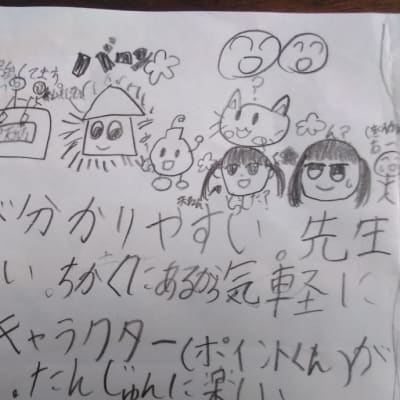 が分かりやすい。先生
い。ちかくにあるから気軽に
キャラクター(ポイントくん)が
。たんじゅんに楽しい